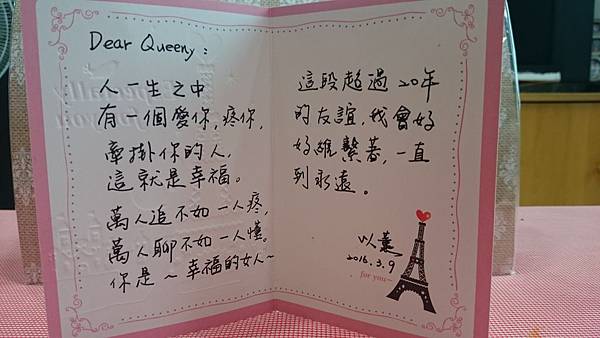 Dear Queeny:
人一生之中
有一個愛你,疼你,
牽掛你的人,
這就是幸福。
萬人追不如一人疼,
萬人聊不如一人懂。
你是~幸福的女人~
這段超過20年
的友誼,我會好
好維繫著,一直
到永遠。
以薰
2016.3.9
for you~